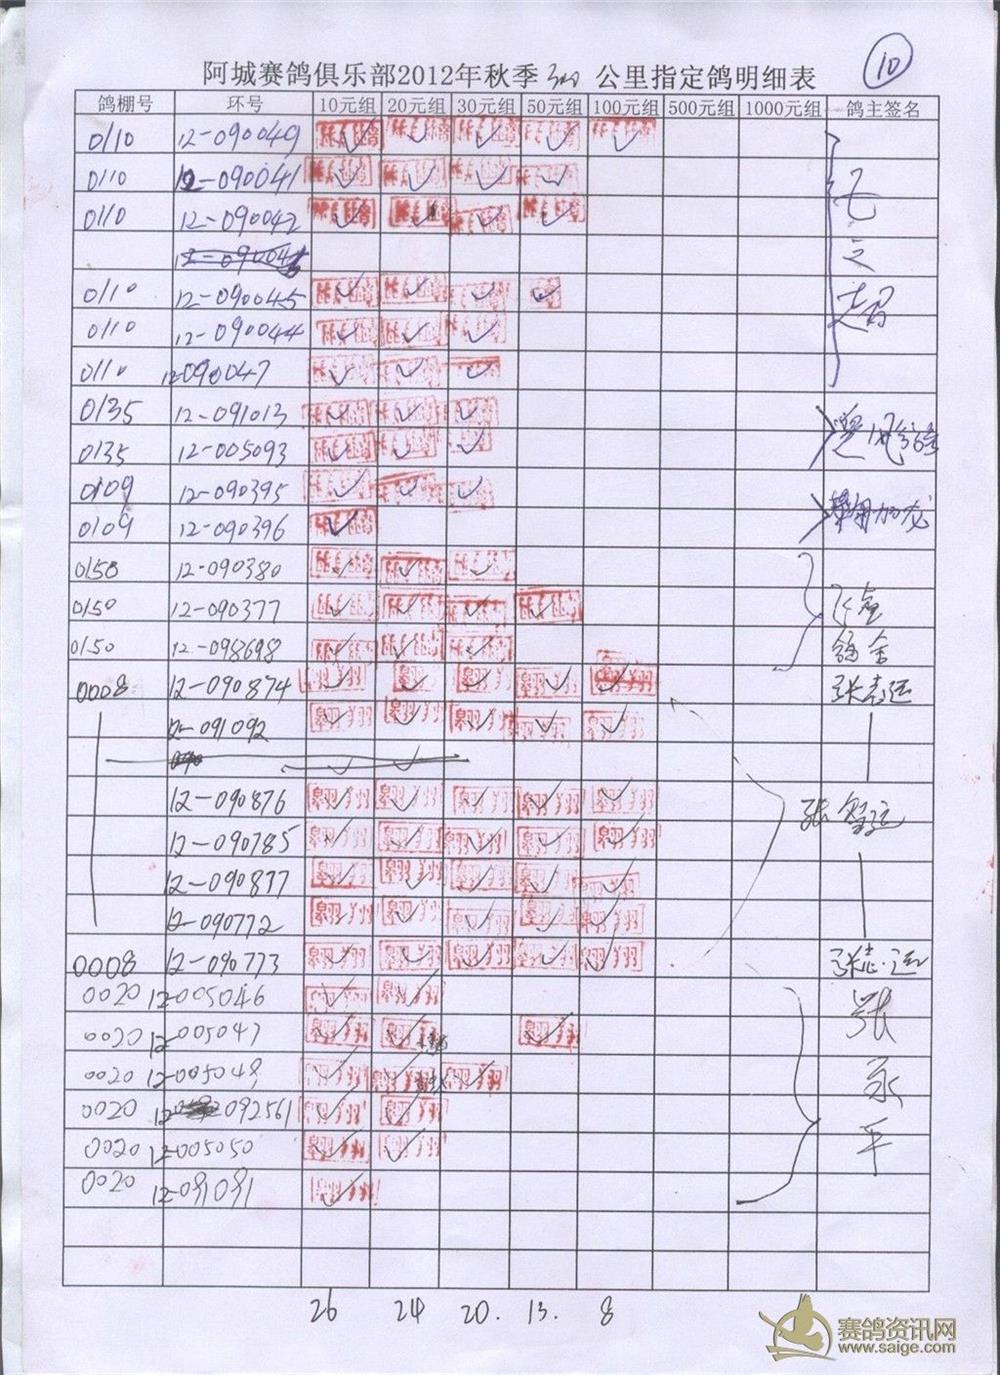 阿城赛鸽俱乐部2012年秋季300公里指定鸽明细表
10
鸽棚号 环号 10元组 20元组 30元组 50元组 100元组 500元组 1000元组 鸽主签名
0110 12-090049 ✓ ✓ ✓ ✓ ✓
0110 12-090041 ✓ ✓ ✓ ✓
0110 12-090042 ✓ ✓ ✓ ✓
0110 12-090045 ✓ ✓ ✓ ✓
0110 12-090044 ✓ ✓ ✓
0110 12-090047 ✓ ✓ ✓
0135 12-091013 ✓ ✓ ✓
0135 12-005093 ✓ ✓ ✓
0109 12-090395 ✓ ✓ ✓
0109 12-090396 ✓
0150 12-090380 ✓ ✓ ✓
0150 12-090377 ✓ ✓ ✓ ✓
0150 12-098698 ✓ ✓ ✓
0008 12-090874 ✓ ✓ ✓ ✓ ✓ 张志运
12-091092 ✓ ✓ ✓ ✓ ✓
12-090876 ✓ ✓ ✓ ✓ ✓
12-090785 ✓ ✓ ✓ ✓ ✓
12-090877 ✓ ✓ ✓ ✓ ✓
12-090772 ✓ ✓ ✓ ✓ ✓
0008 12-090773 ✓ ✓ ✓ ✓ ✓ 张志运
0020 12-005046 ✓ ✓ 张永平
0020 12-005047 ✓ ✓ ✓
0020 12-005048 ✓ ✓ ✓
0020 12-092561 ✓ ✓
0020 12-005050 ✓ ✓
0020 12-091091 ✓
26 24 20. 13. 8
赛鸽资讯网
www.saige.com